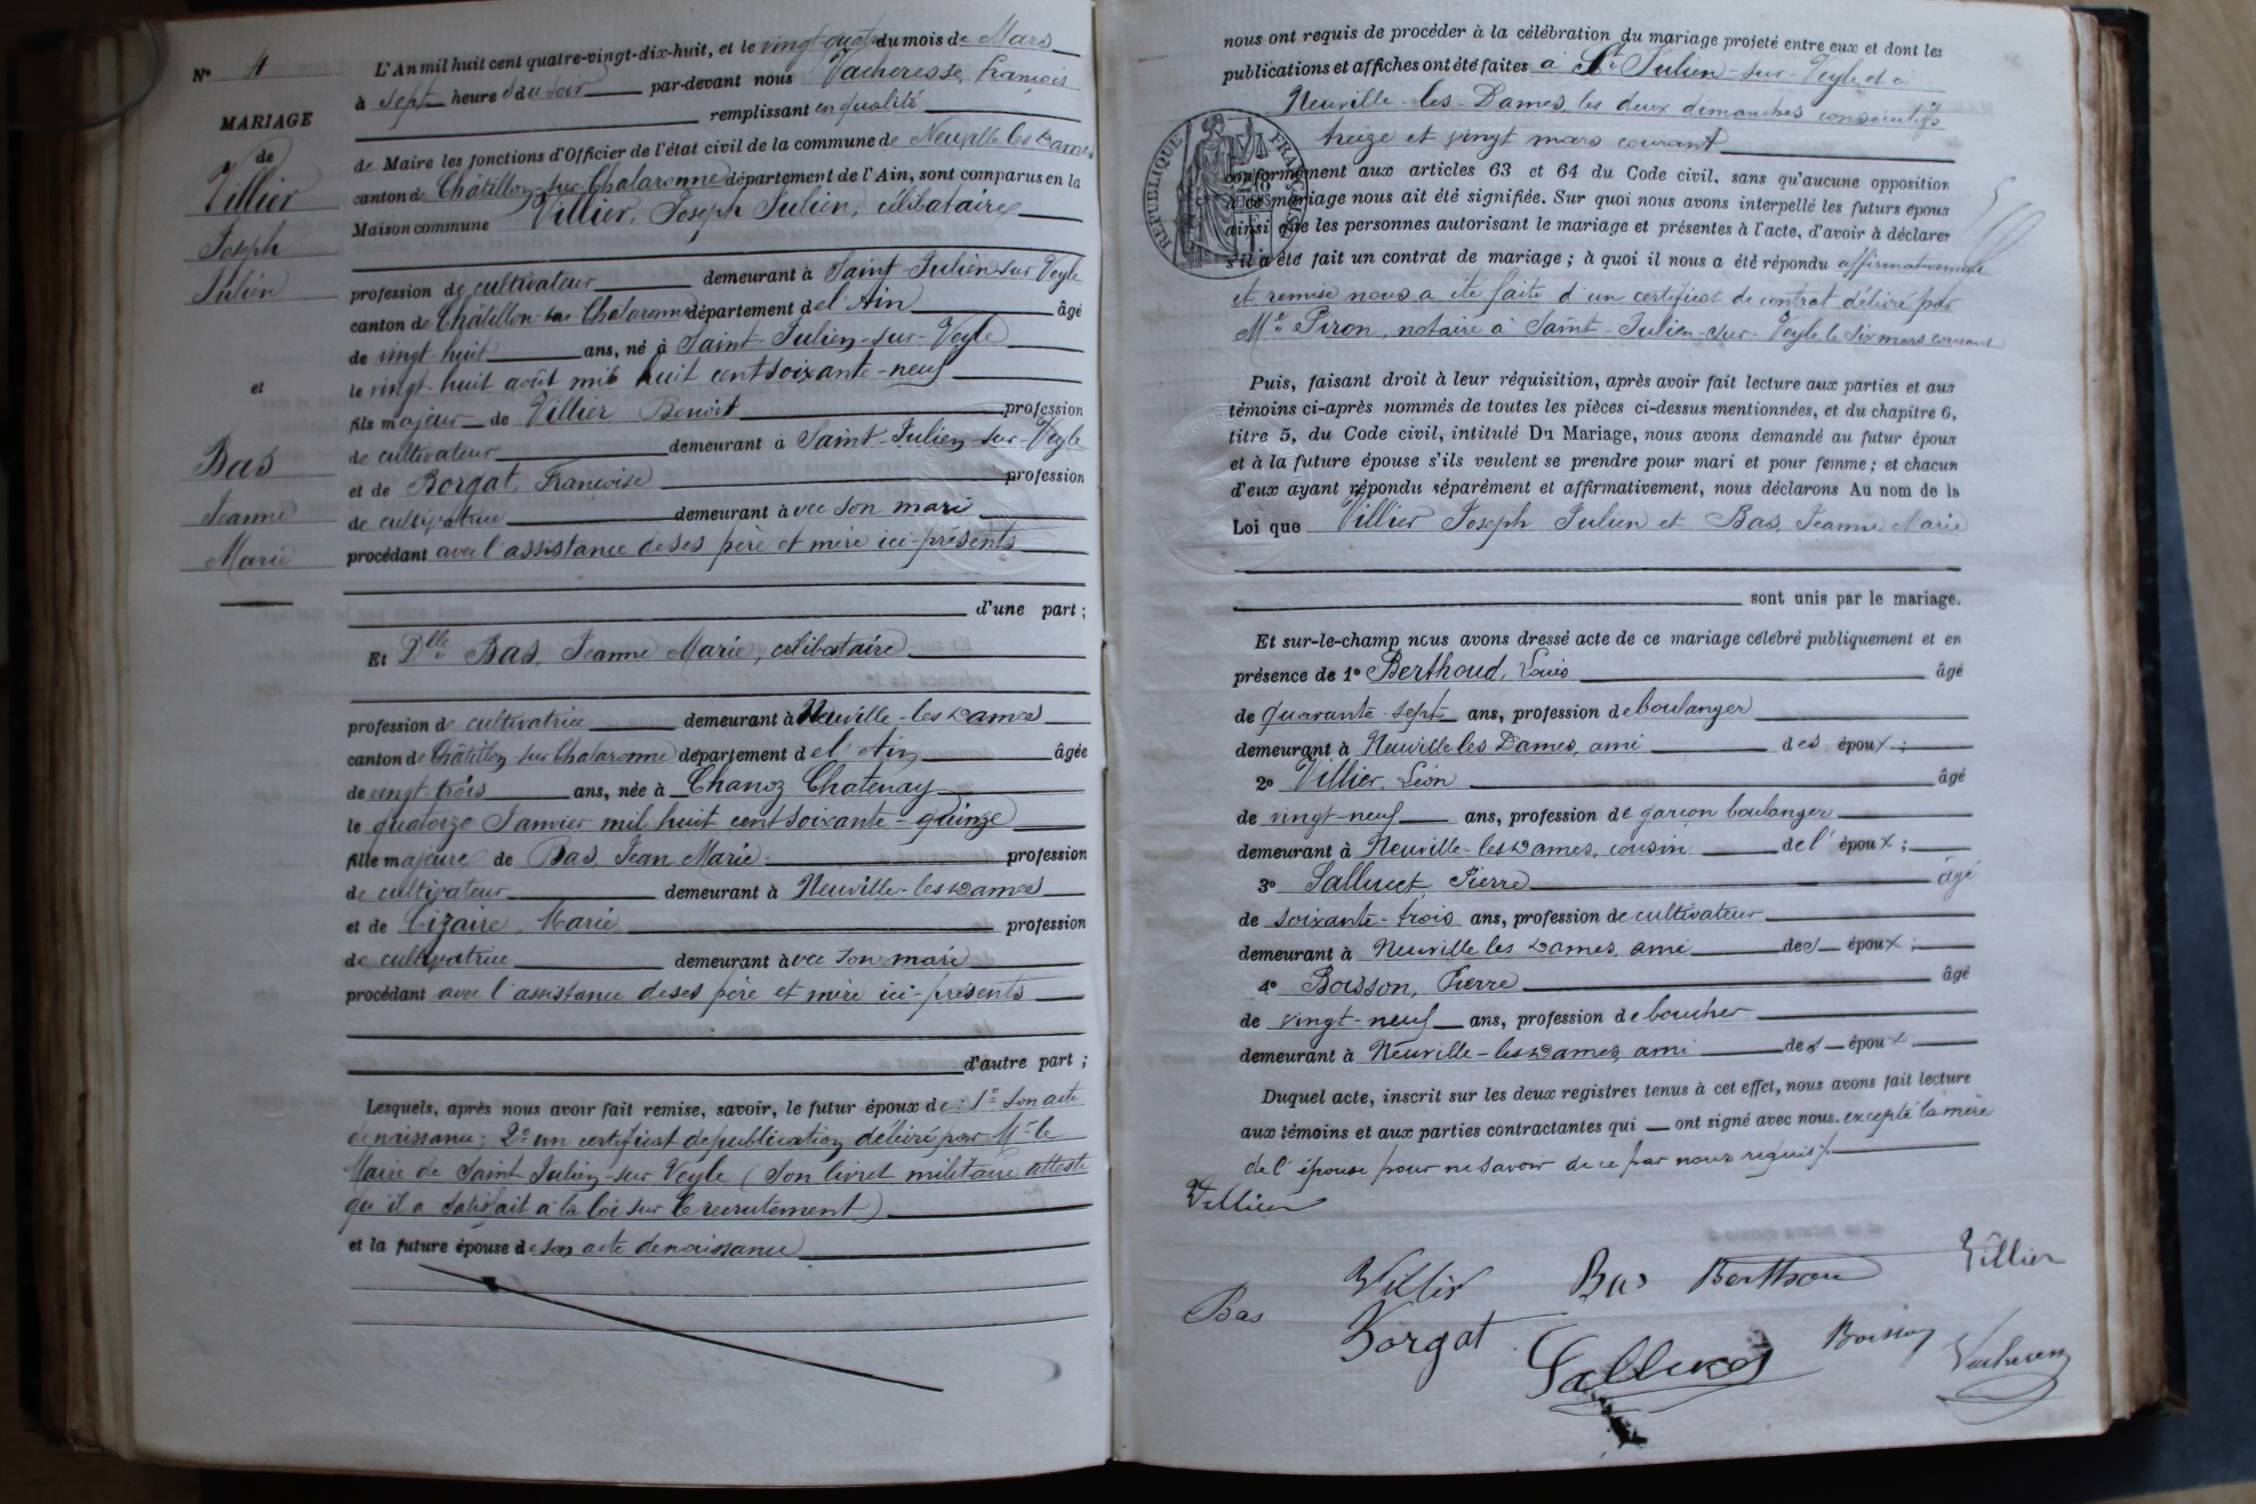 N° 4
MARIAGE
de
Villier
Joseph
Julien
et
Bas
Jeanne
Marie
L'An mil huit cent quatre-vingt-dix-huit, et le vingt-quatre du mois de Mars
à sept heures du soir par-devant nous Vacheresse, François
remplissant en qualité
de Maire les fonctions d'Officier de l'état civil de la commune de Neuville les Dames
canton de Châtillon-sur-Chalaronne département de l'Ain, sont comparus en la
Maison commune Villier, Joseph Julien, célibataire
profession de cultivateur demeurant à Saint-Julien sur Veyle
canton de Châtillon-sur-Chalaronne département de l'Ain âgé
de vingt-huit ans, né à Saint-Julien-sur-Veyle
le vingt-huit août mil huit cent soixante-neuf
fils majeur de Villier Benoit profession
de cultivateur demeurant à Saint-Julien-sur-Veyle
et de Borgat, Françoise profession
de cultivatrice demeurant avec son mari
procédant avec l'assistance de ses père et mère ici-présents
d'une part ;
Et Dlle Bas, Jeanne Marie, célibataire
profession de cultivatrice demeurant à Neuville-les Dames
canton de Châtillon-sur-Chalaronne département de l'Ain âgée
de vingt trois ans, née à Chanoz Chatenay
le quatorze Janvier mil huit cent soixante-quinze
fille majeure de Bas, Jean Marie profession
de cultivateur demeurant à Neuville-les Dames
et de Cizaire, Marie profession
de cultivatrice demeurant avec son mari
procédant avec l'assistance de ses père et mère ici-présents
d'autre part ;
Lesquels, après nous avoir fait remise, savoir, le futur époux de : 1° son acte
de naissance ; 2° un certificat de publication délivré par Mr le
Maire de Saint-Julien-sur Veyle (Son livret militaire atteste
qu'il a satisfait à la loi sur le recrutement)
et la future épouse de son acte de naissance
nous ont requis de procéder à la célébration du mariage projeté entre eux et dont les
publications et affiches ont été faites à St Julien-sur-Veyle et à
Neuville-les-Dames, les deux dimanches consécutifs
treize et vingt mars courant
RÉPUBLIQUE FRANÇAISE
conformément aux articles 63 et 64 du Code civil, sans qu'aucune opposition
à ce mariage nous ait été signifiée. Sur quoi nous avons interpellé les futurs époux
ainsi que les personnes autorisant le mariage et présentes à l'acte, d'avoir à déclarer
s'il a été fait un contrat de mariage ; à quoi il nous a été répondu affirmativement
et remise nous a été faite d'un certificat de contrat délivré par
Me Piron, notaire à Saint-Julien-sur-Veyle, le six mars courant
Puis, faisant droit à leur réquisition, après avoir fait lecture aux parties et aux
témoins ci-après nommés de toutes les pièces ci-dessus mentionnées, et du chapitre 6,
titre 5, du Code civil, intitulé Du Mariage, nous avons demandé au futur époux
et à la future épouse s'ils veulent se prendre pour mari et pour femme ; et chacun
d'eux ayant répondu séparément et affirmativement, nous déclarons Au nom de la
Loi que Villier Joseph Julien et Bas, Jeanne Marie
sont unis par le mariage.
Et sur-le-champ nous avons dressé acte de ce mariage célébré publiquement et en
présence de 1° Berthoud, Louis âgé
de quarante-sept ans, profession de boulanger
demeurant à Neuville les Dames, ami des époux ;
2° Villier, Léon âgé
de vingt-neuf ans, profession de garçon boulanger
demeurant à Neuville-les Dames, cousin de l'époux ;
3° Sallucet, Pierre âgé
de soixante-trois ans, profession de cultivateur
demeurant à Neuville les Dames, ami des époux ;
4° Boisson, Pierre âgé
de vingt-neuf ans, profession de boucher
demeurant à Neuville-les Dames, ami des époux
Duquel acte, inscrit sur les deux registres tenus à cet effet, nous avons fait lecture
aux témoins et aux parties contractantes qui ont signé avec nous. excepté la mère
de l'épouse pour ne savoir de ce par nous requis
Villier
Villier Bas Berthoud Villier
Bas Borgat Boisson